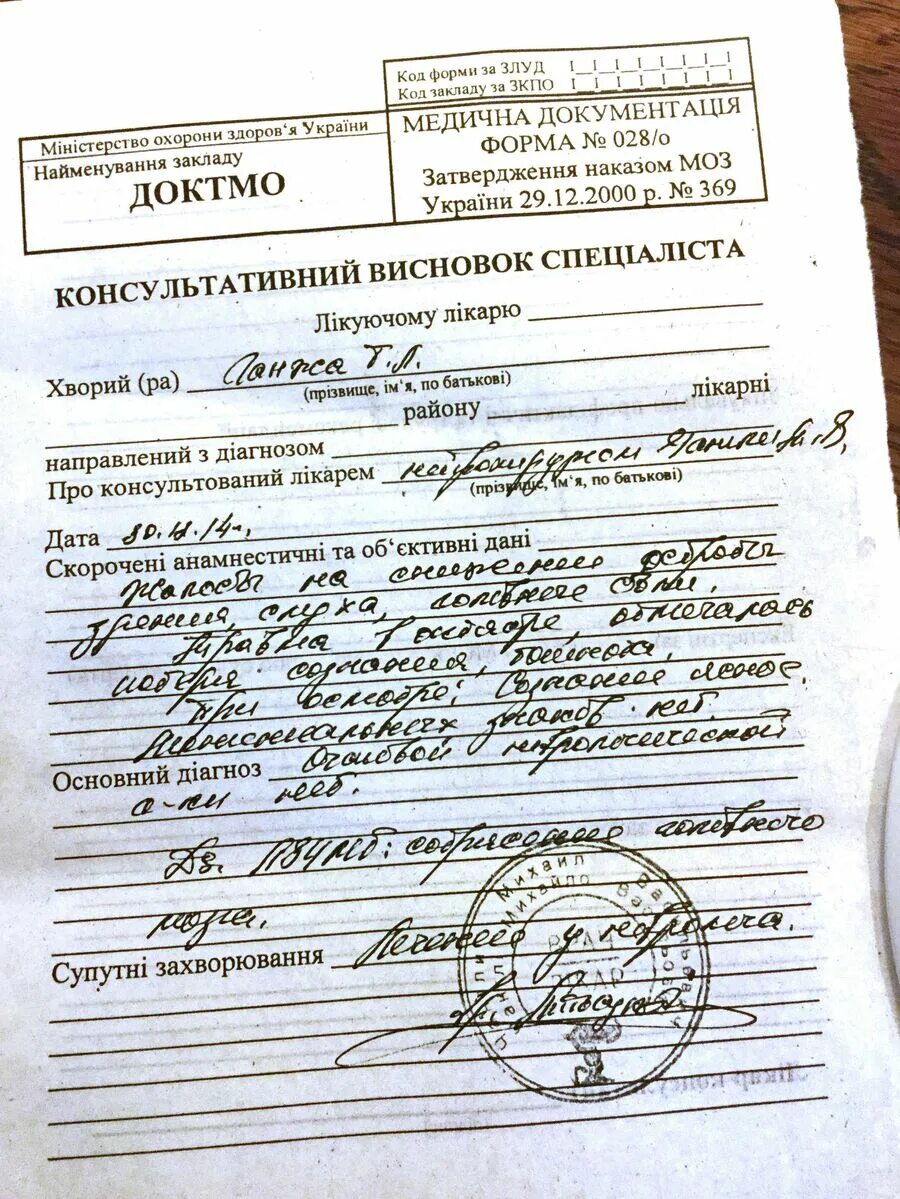 Код форми за ЗЛУД
Код закладу за ЗКПО
Міністерство охорони здоров'я України
Найменування закладу
ДОКТМО
МЕДИЧНА ДОКУМЕНТАЦІЯ
ФОРМА № 028/о
Затвердження наказом МОЗ
України 29.12.2000 р. № 369
КОНСУЛЬТАТИВНИЙ ВИСНОВОК СПЕЦІАЛІСТА
Лікуючому лікарю
Хворий (ра) Ганжа Т.Л.
(прізвище, ім'я, по батькові)
району лікарні
направлений з діагнозом
Про консультований лікарем нейрохирургом
(прізвище, ім'я, по батькові)
Дата
Скорочені анамнестичні та об'єктивні дані
Жалобы на снижение остроты
зрения, слуха, головные боли.
Травма в октябре, отмечалось
потеря сознания, тошнота.
При осмотре: Сознание ясное.
Менингиальных знаков нет.
Основний діагноз Очаговой неврологической
с-ки нет.
Дз. ЗЧМТ: сотрясение головного
мозга.
Супутні захворювання Лечение у невролога.
Михаил
Михайло